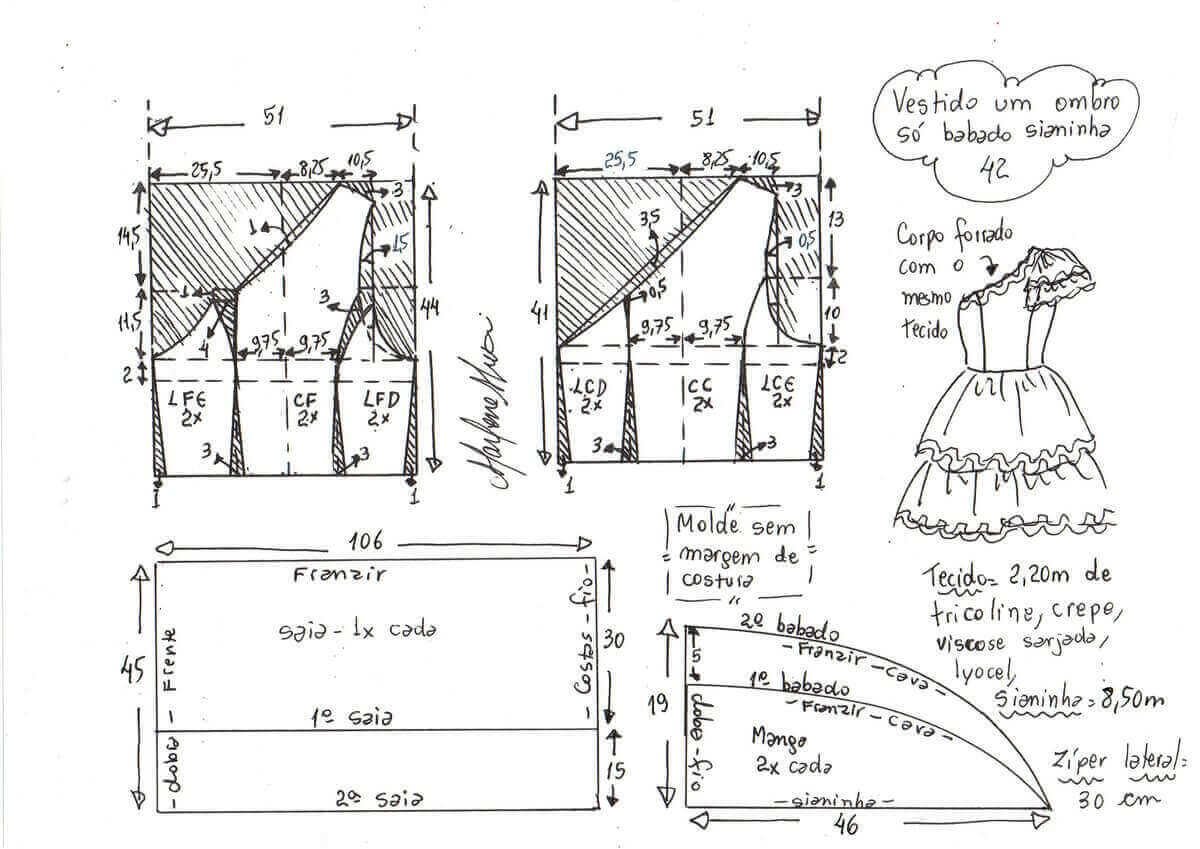 Vestido um ombro
só babado sianinha
42
51
25,5 8,25 10,5
3
14,5
1
1,5
1
11,5
3
44
4
9,75 9,75
2
LFE
2x
CF
2x
LFD
2x
3 3
1 1
51
25,5 8,25 10,5
3
13
3,5
0,5
41
0,5
10
9,75 9,75
2
LCD
2x
CC
2x
LCE
2x
3 3
1 1
Corpo forrado
com o
mesmo
tecido
106
Franzir
saia - 1x cada
45
- dobra - Frente
Costas - fio -
30
1ª saia
15
2ª saia
Molde sem
margem de
costura
2º babado
- Franzir - cava -
5
1º babado
- Franzir - cava -
19
dobra - fio
Manga
2x cada
- sianinha -
46
Tecido = 2,20m de
tricoline, crepe,
viscose sarjada,
lyocel,
sianinha = 8,50m
Zíper lateral =
30 cm